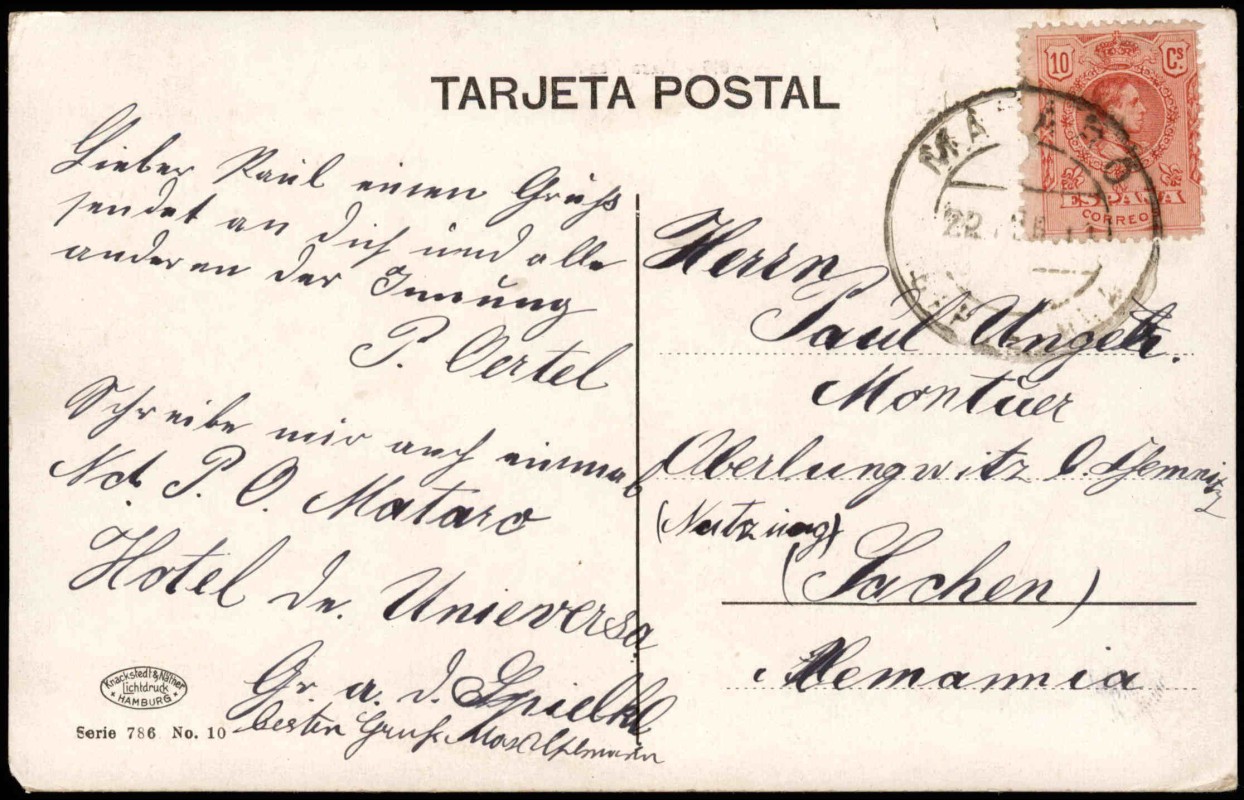 TARJETA POSTAL
10 Cs.
ESPAÑA
CORREO
22
Lieber Paul einen Gruß
sendet an dich und alle
anderen der Innung
P. Oertel
Schreibe mir auch einmal
P. O. Mataro
Hotel de. Unieversa
Gr. a. d.
besten Gruß Max Uhlmann
Herrn
Paul
Montüer
Oberlungwitz b. Chemnitz
(Nutzung)
(Sachen)
Alemannia
Knackstedt & Näther
Lichtdruck
HAMBURG
Serie 786 No. 10